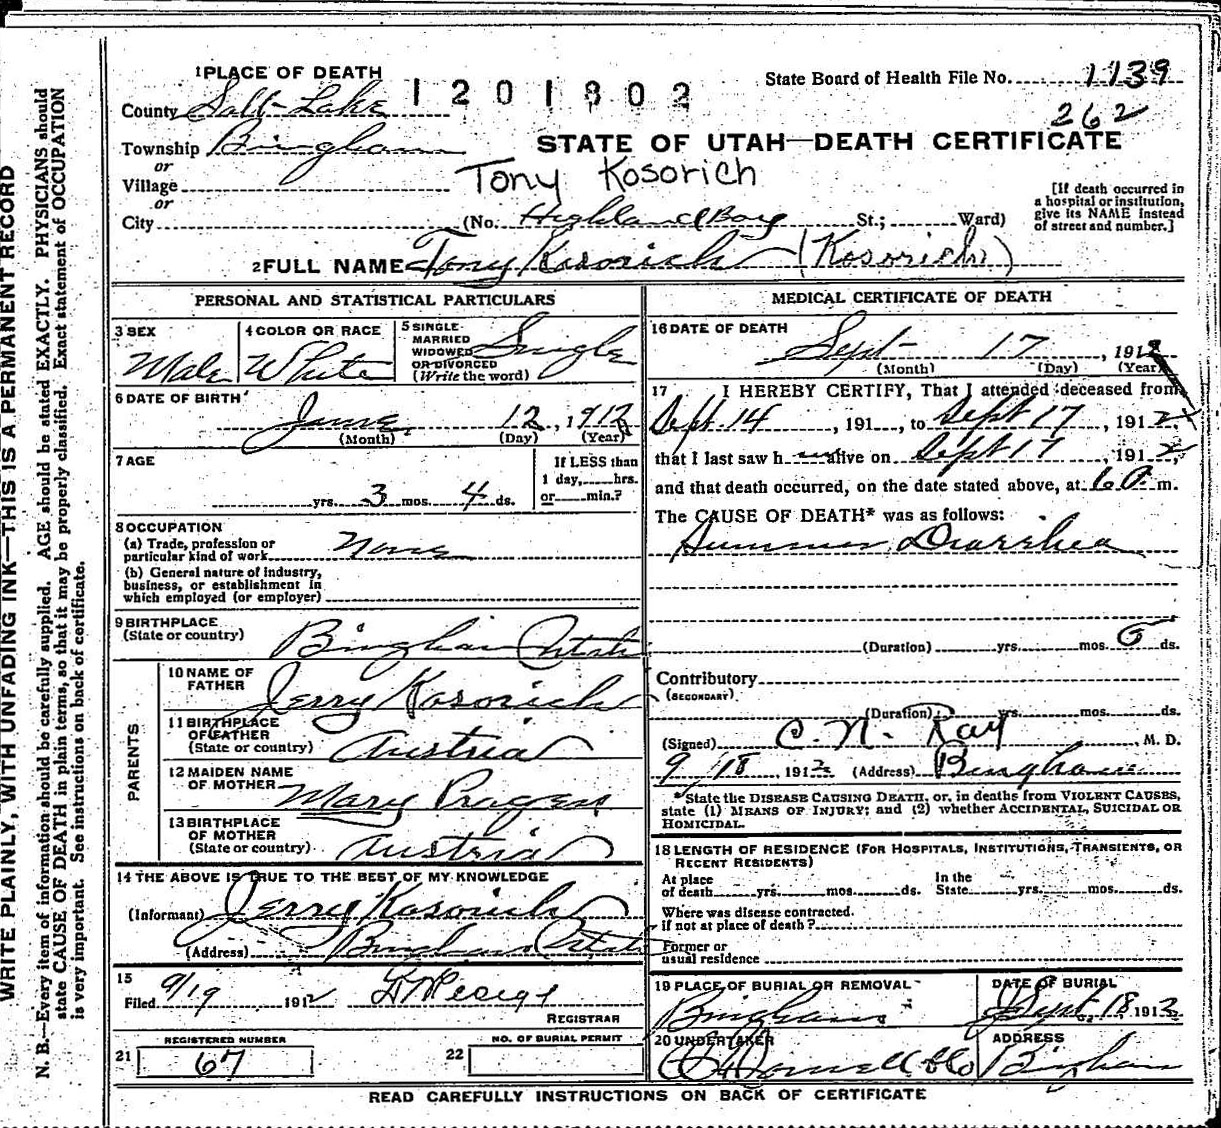 WRITE PLAINLY, WITH UNFADING INK—THIS IS A PERMANENT RECORD
N. B.—Every item of information should be carefully supplied. AGE should be stated EXACTLY. PHYSICIANS should
state CAUSE OF DEATH in plain terms, so that it may be properly classified. Exact statement of OCCUPATION
is very important. See instructions on back of certificate.
1 PLACE OF DEATH
State Board of Health File No. 1139
1201802
262
County Salt Lake
Township Bingham
STATE OF UTAH—DEATH CERTIFICATE
or
Village
Tony Kosorich
or
City (No. Highland Boy St.; Ward)
[If death occurred in
a hospital or institution,
give its NAME instead
of street and number.]
2 FULL NAME Tony Kosorich (Kosorich)
PERSONAL AND STATISTICAL PARTICULARS
3 SEX
Male
4 COLOR OR RACE
White
5 SINGLE
MARRIED
WIDOWED
OR DIVORCED
(Write the word)
Single
6 DATE OF BIRTH
June 12, 1912
(Month) (Day) (Year)
7 AGE
yrs. 3 mos. 4 ds.
If LESS than
1 day, hrs.
or min.?
8 OCCUPATION
(a) Trade, profession or
particular kind of work None
(b) General nature of industry,
business, or establishment in
which employed (or employer)
9 BIRTHPLACE
(State or country) Bingham Utah
PARENTS
10 NAME OF
FATHER Jerry Kosorich
11 BIRTHPLACE
OF FATHER
(State or country) Austria
12 MAIDEN NAME
OF MOTHER Mary
13 BIRTHPLACE
OF MOTHER
(State or country) Austria
14 THE ABOVE IS TRUE TO THE BEST OF MY KNOWLEDGE
(Informant) Jerry Kosorich
(Address) Bingham Utah
15
Filed 9/19 1912
REGISTRAR
REGISTERED NUMBER
21 67
NO. OF BURIAL PERMIT
22
MEDICAL CERTIFICATE OF DEATH
16 DATE OF DEATH
Sept 17, 1912
(Month) (Day) (Year)
17 I HEREBY CERTIFY, That I attended deceased from
Sept. 14, 191 , to Sept 17, 1912
that I last saw h alive on Sept 17, 1912,
and that death occurred, on the date stated above, at 6 m.
The CAUSE OF DEATH* was as follows:
Summer Diarrhea
(Duration) yrs. mos. 5 ds.
Contributory
(SECONDARY)
(Duration) yrs. mos. ds.
(Signed) C. N. Ray, M. D.
9/18, 1912 (Address) Bingham
*State the DISEASE CAUSING DEATH, or, in deaths from VIOLENT CAUSES,
state (1) MEANS OF INJURY; and (2) whether ACCIDENTAL, SUICIDAL OR
HOMICIDAL.
18 LENGTH OF RESIDENCE (FOR HOSPITALS, INSTITUTIONS, TRANSIENTS, OR
RECENT RESIDENTS)
At place
of death yrs. mos. ds.
In the
State yrs. mos. ds.
Where was disease contracted.
if not at place of death?
Former or
usual residence
19 PLACE OF BURIAL OR REMOVAL
Bingham
DATE OF BURIAL
Sept. 18, 1912
20 UNDERTAKER
O'Donnell & Co
ADDRESS
Bingham
READ CAREFULLY INSTRUCTIONS ON BACK OF CERTIFICATE